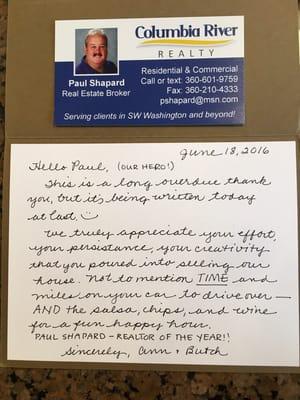 Columbia River
REALTY
Paul Shapard
Real Estate Broker
Residential & Commercial
Call or text: 360-601-9759
Fax: 360-210-4333
pshapard@msn.com
Serving clients in SW Washington and beyond!
June 18, 2016
Hello Paul, (OUR HERO!)
This is a long overdue thank
you, but it's being written today
at last. ☺
We truly appreciate your effort,
your persistance, your creativity
that you poured into selling our
house. Not to mention TIME and
miles on your car to drive over —
AND the salsa, chips, and wine
for a fun happy hour.
PAUL SHAPARD - REALTOR OF THE YEAR!!
Sincerely, Ann + Butch